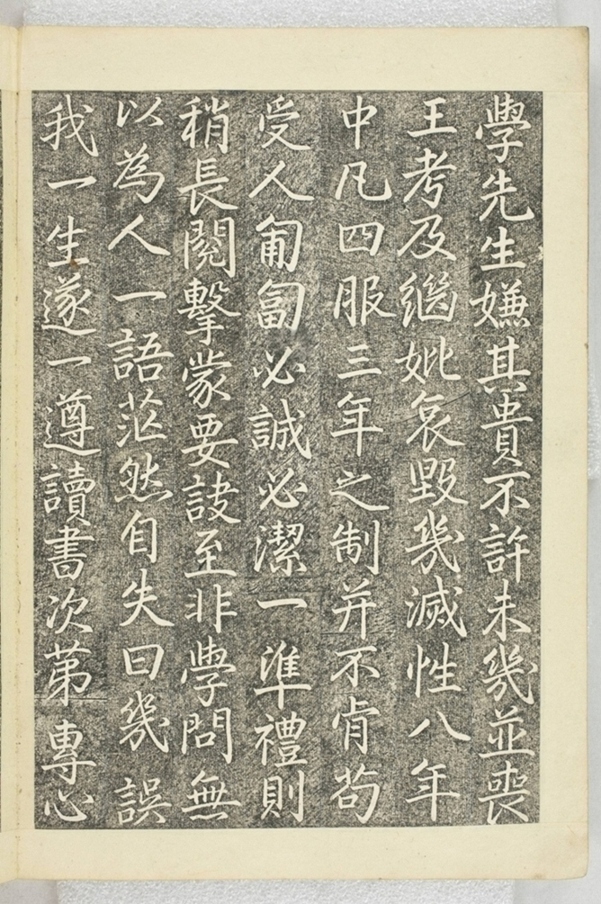 學先生嫌其貴不許未幾並喪
王考及繼妣哀毀幾滅性八年
中凡四服三年之制并不肯苟
受人匍匐必誠必潔一準禮則
稍長閱擊蒙要訣至非學問無
以為人一語茫然自失曰幾誤
我一生遂一遵讀書次第專心